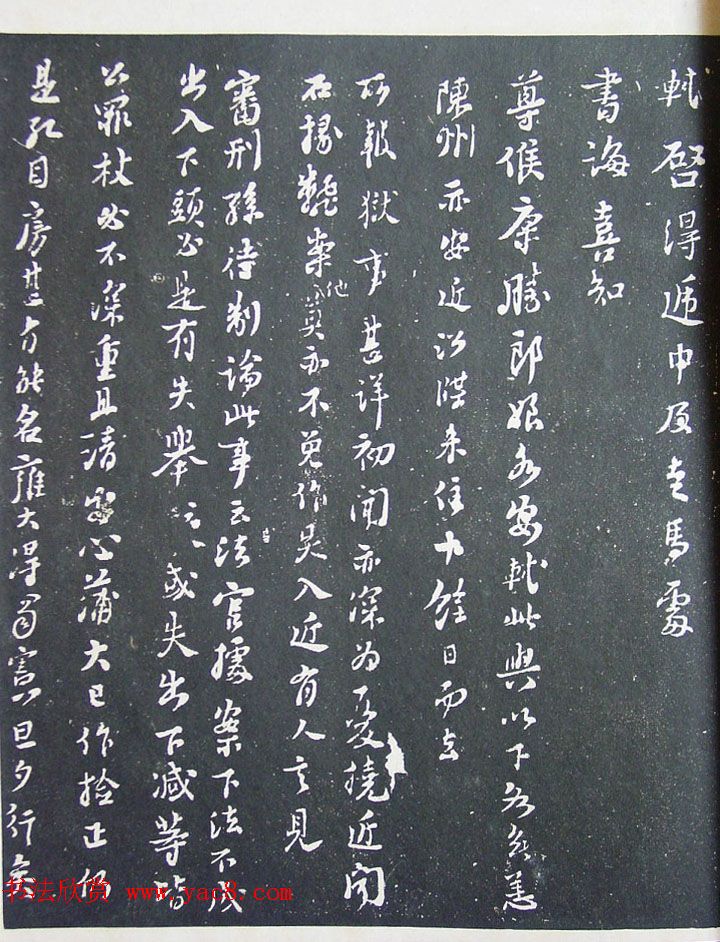 軾啓得遞中及走馬處
書誨喜知
尊候康勝郎娘各安軾此與以下各無恙
陳州亦安近沿牒來住十餘日而去
所報獄事甚詳初聞亦深為憂撓近聞
石掾麤案他莫亦不免作失入近有人言見
審刑孫待制論此事云法官據案下法不成
出入下頭必是有失舉云云或失出下減等皆
公罪杖必不深重且請寬心蒲大已作檢正仍
是孔目房甚有能名雍大得蜀憲旦夕行
书法欣赏 www.yac8.com